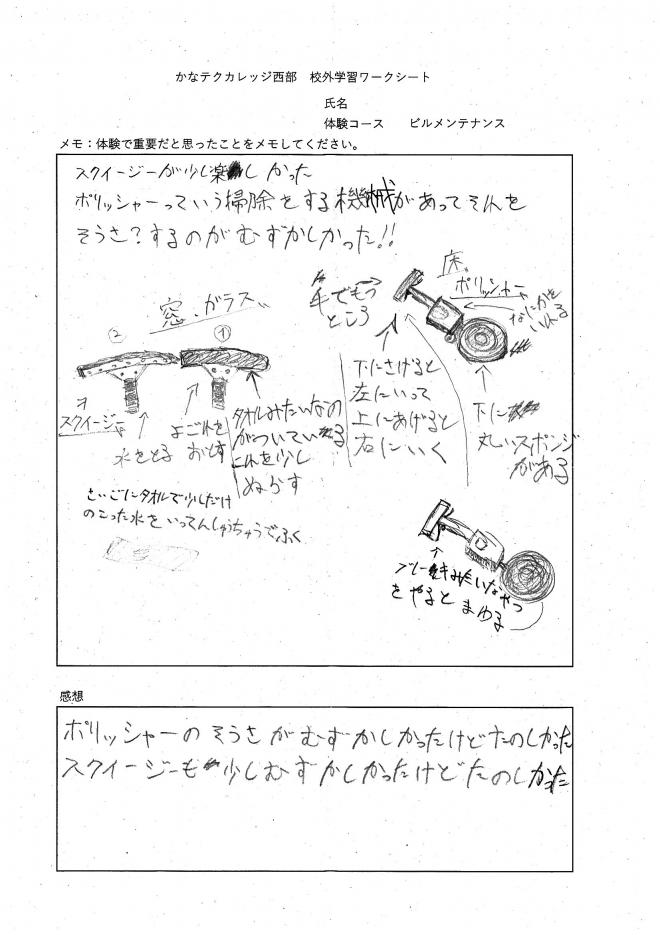 かなテクカレッジ西部　校外学習ワークシート
氏名
体験コース　ビルメンテナンス
メモ：体験で重要だと思ったことをメモしてください。
スクイージーが少し楽しかった
ポリッシャーっていう掃除をする機械があってそれを
そうさ？するのがむずかしかった!!
窓、ガラス
②
①
スクイージー
水をとる
よごれを
おとす
タオルみたいなの
がついている
これを少し
ぬらす
さいごにタオルで少しだけ
のこった水をいってんしゅうちゅうでふく
床
ポリッシャー
手でもつ
ところ
なにかを
いれる
下にさげると
左にいって
上にあげると
右にいく
下に
丸いスポンジ
がある
ブレーキみたいなやつ
をやると まわる
感想
ポリッシャーのそうさがむずかしかったけどたのしかった
スクイージーも少しむずかしかったけどたのしかった